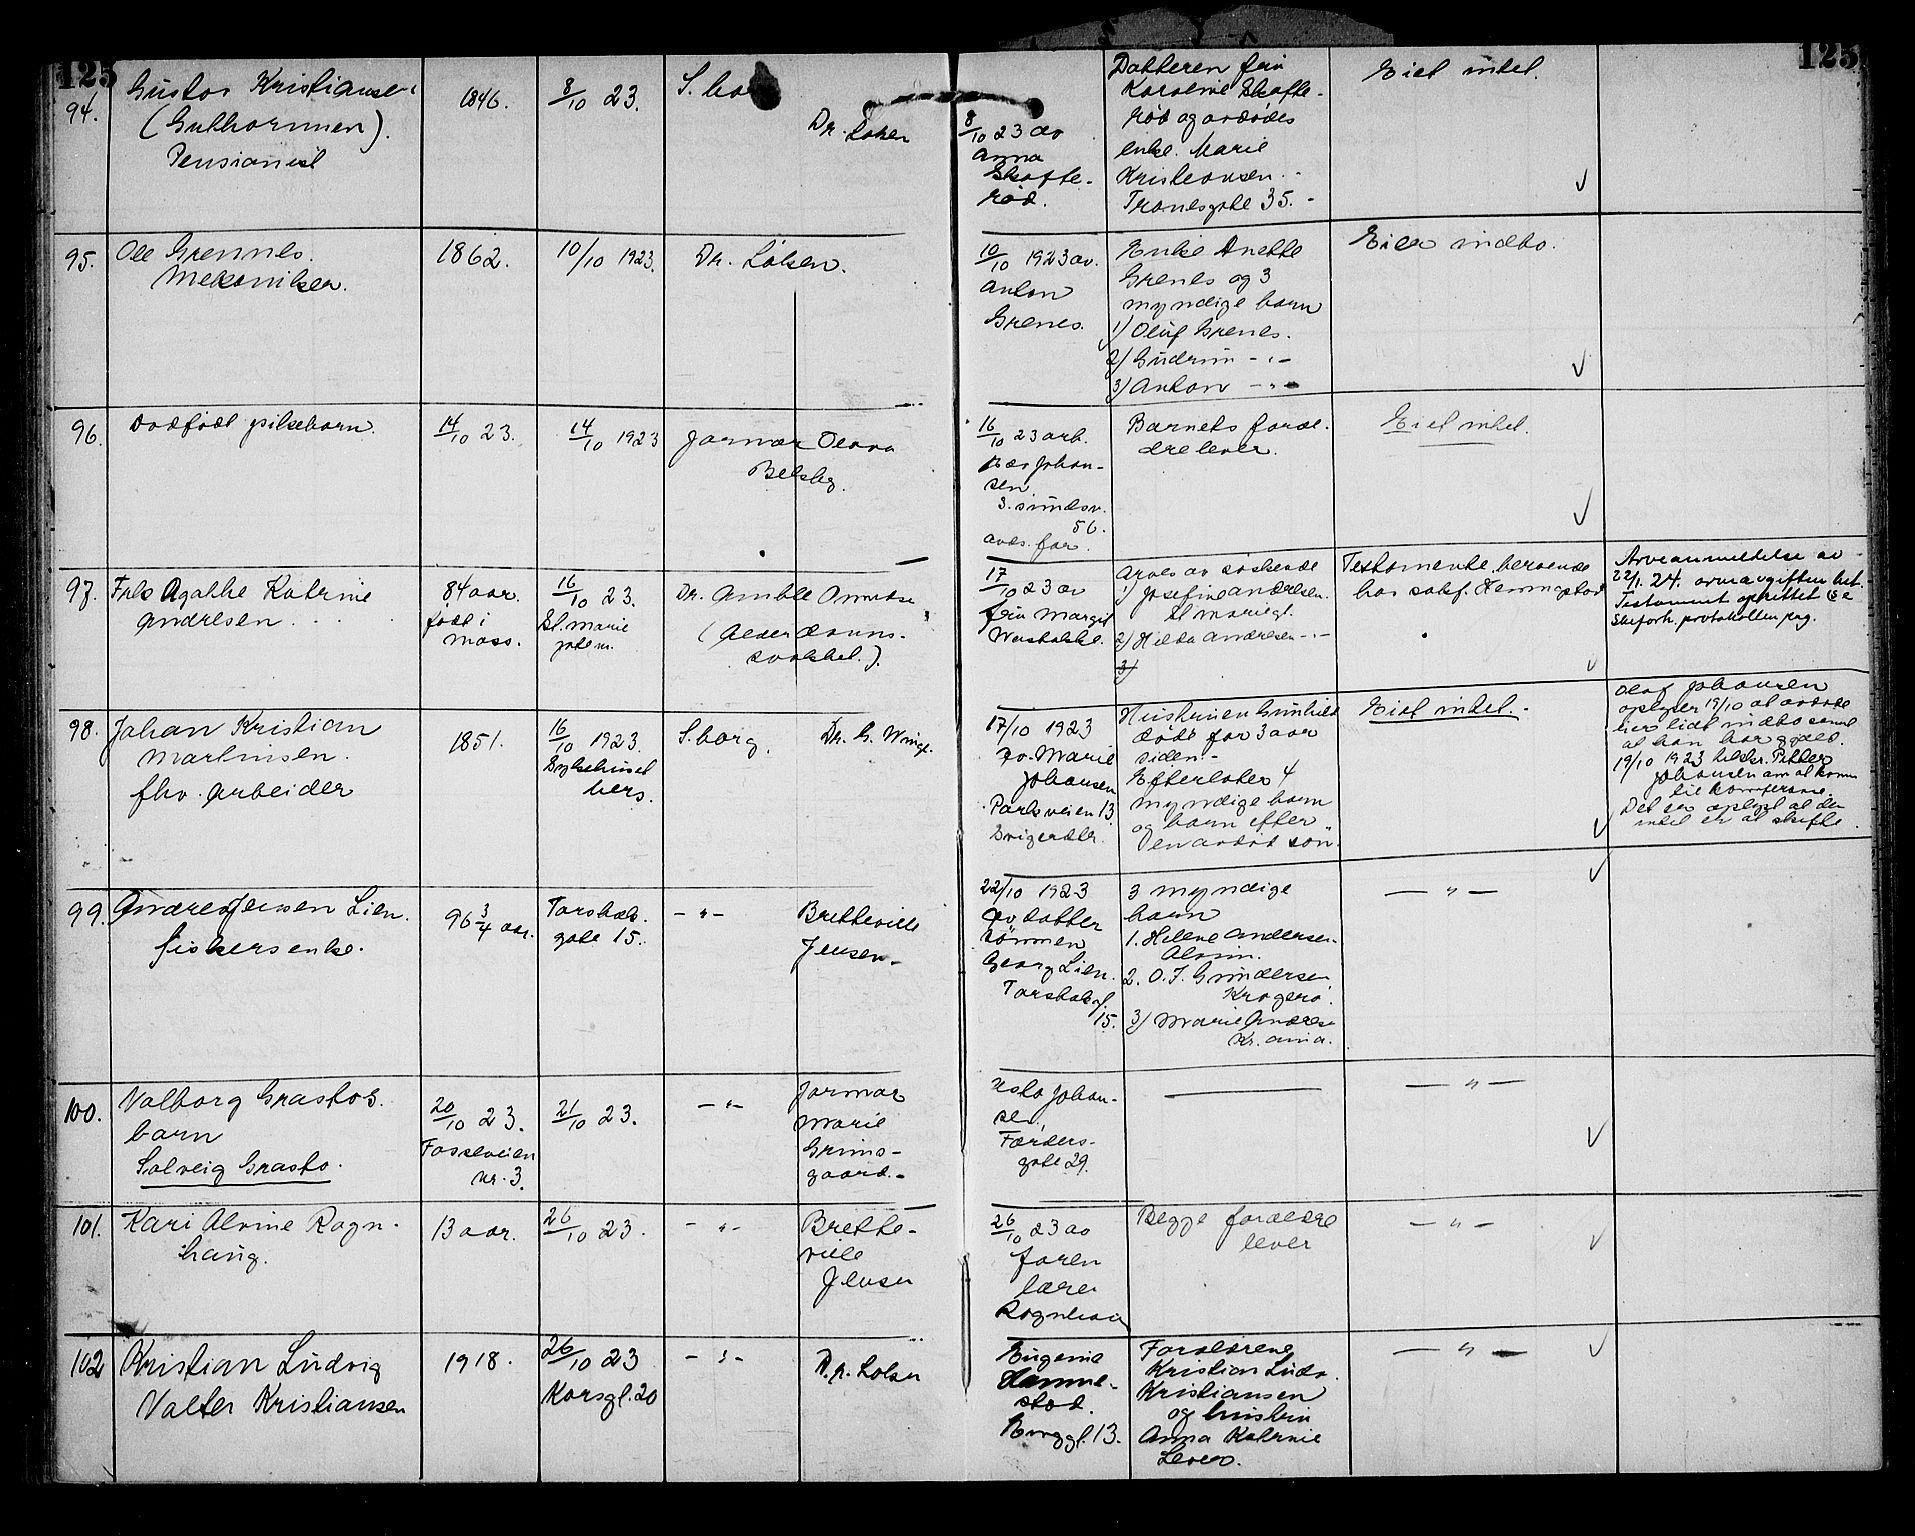 125
125
94.
Gustav Kristiansen
(Guthormsen).
Pensionist
1846.
8/10 23.
S.bo
Dr. Løken
8/10 23 av
Anna
Skofte-
rød.
Datteren fru
Karoline Skofte-
rød og avdødes
enke. Marie
Kristiansen.
Tranesgate 35.-
Eiet intet.
95.
Ole Grennes.
Mekaniker.
1862.
10/10 1923.
Dr. Løken.
10/10 1923 av.
Anton
Grenes.
Enke Anette
Grenes og 3
myndige barn
1) Oluf Grenes.
2) Gudrun -"-
3) Anton -"-
Eier indbo.
96.
Dødfødt pikebarn.
14/10 23.
14/10 1923
Jormor Olava
Belsby.
16/10 23 arb.
Johan-
sen
S. sundsv.
56.
avds. far.
Barnets foræl-
dre lever.
Eiet intet.
97.
Frk Agathe Katrine
Andresen
84 aar.
født i
Moss.
16/10 23.
St. Marie
gate
Dr. Amble Ommundsen
(Alderdoms-
svakhet.).
17/10 23 av
fru Margit
Arves av søskende
1) Josefine Andresen.
St. Mariegt.
2) Hilda Andresen -"-
3)
Testamente beroende
hos sakf. Hermanstad
Arveanmeldelse av
22/1. 24. arveavgiften bet.
Testament oprettet se
Skifterh. protokollen pag.
98.
Johan Kristian
Martinsen.
fhv. Arbeider
1851.
16/10 1923.
Sykehuset
hers.
S.borg.
Dr. G. Winge.
17/10 1923
av. Marie
Johansen
Parkveien 13.
Svigerdtr.
Hustruen Gunhild
døde for 3 aar
siden.-
Efterlater 4
myndige barn
og barn efter
en avdød søn.
Eiet intet.-
Olaf Johansen
oplyser 19/10 at avdøde
eier lidt indbo samt
at han har gjæld.
19/10 1923 tilskr. Petter
Johansen om at komme
til konferanse.
Det er oplyst at der
intet er at skifte.
99.
Andrea Jensen Lien.
fiskersenke.
96 3/4 aar.
Torsbæk-
gate 15.
-"-
Bretteville
Jensen-
22/10 1923
av datter
sønnen
Georg Lien.
Torsbækg.
15.
3 myndige
barn
1. Helene Andersen.
Alvim.
2. O. J. Gundersen
Kragerø.
3) Marie Andresen
Kr.ania.
-"-
100.
Valborg Grastos.
barn
Solveig Grasto.
20/10 23.
Fosseveien
nr. 3.
21/10 23.
-"-
Jormor
Marie
Grims-
gaard.-
Asta Johan-
sen,
Færder-
gate 29.
-"-
101.
Kari Alvine Ragn-
haug.
13 aar.
26/10 23.
-"-
Brette-
ville
Jensen
26/10 23 av
faren
lærer
Ragnhaug
Begge forældre
lever
-"-
102
Kristian Ludvig
Valter Kristiansen
1918.
26/10 23
Korsgt. 20
-"-
Dr. Løken
Eugenie
Hamme-
stad.
Borggt. 13.
Forældrene
Kristian Ludv.
Kristiansen
og hustru
Anna Katrine
Lever.
-"-